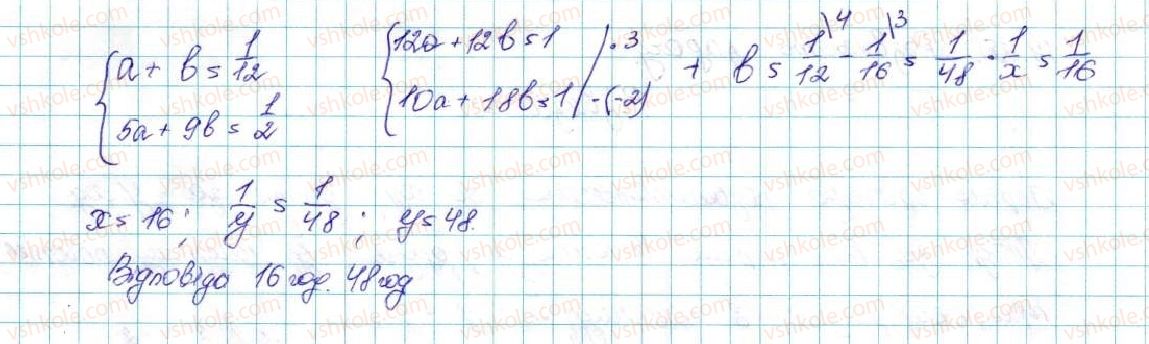 { a + b = 1/12
5a + 9b = 1/2
{ 12a + 12b = 1 / · 3
10a + 18b = 1 / · (-2)
+ b = 1/12 \4 - 1/16 \3 = 1/48 · 1/x = 1/16
x = 16; 1/y = 1/48; y = 48.
Відповідь 16 год. 48 год